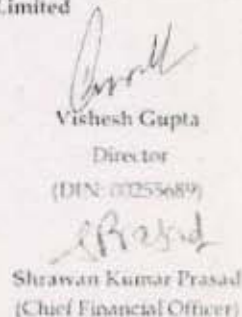 Limited
Vishesh Gupta
Director
(DIN: 00255689)
Shrawan Kumar Prasad
(Chief Financial Officer)